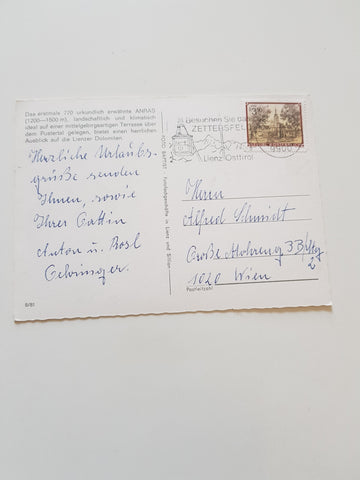 Das erstmals 770 urkundlich erwähnte ANRAS
(1200—1500 m), landschaftlich und klimatisch
ideal auf einer mittelgebirgsartigen Terrasse über
dem Pustertal gelegen, bietet einen herrlichen
Ausblick auf die Lienzer Dolomiten.
Herzliche Urlaubs-
grüße senden
Ihnen, sowie
Ihrer Gattin
Anton u. Rosl
6/81
FOTO BAPTIST · Funkfotografie in Lienz und Sillian
Besuchen Sie das
ZETTERSFELD
Lienz Osttirol
9900
Herrn
Alfred Schmidt
Große Mohreng 3B/Stg
2
1020 Wien
Postleitzahl